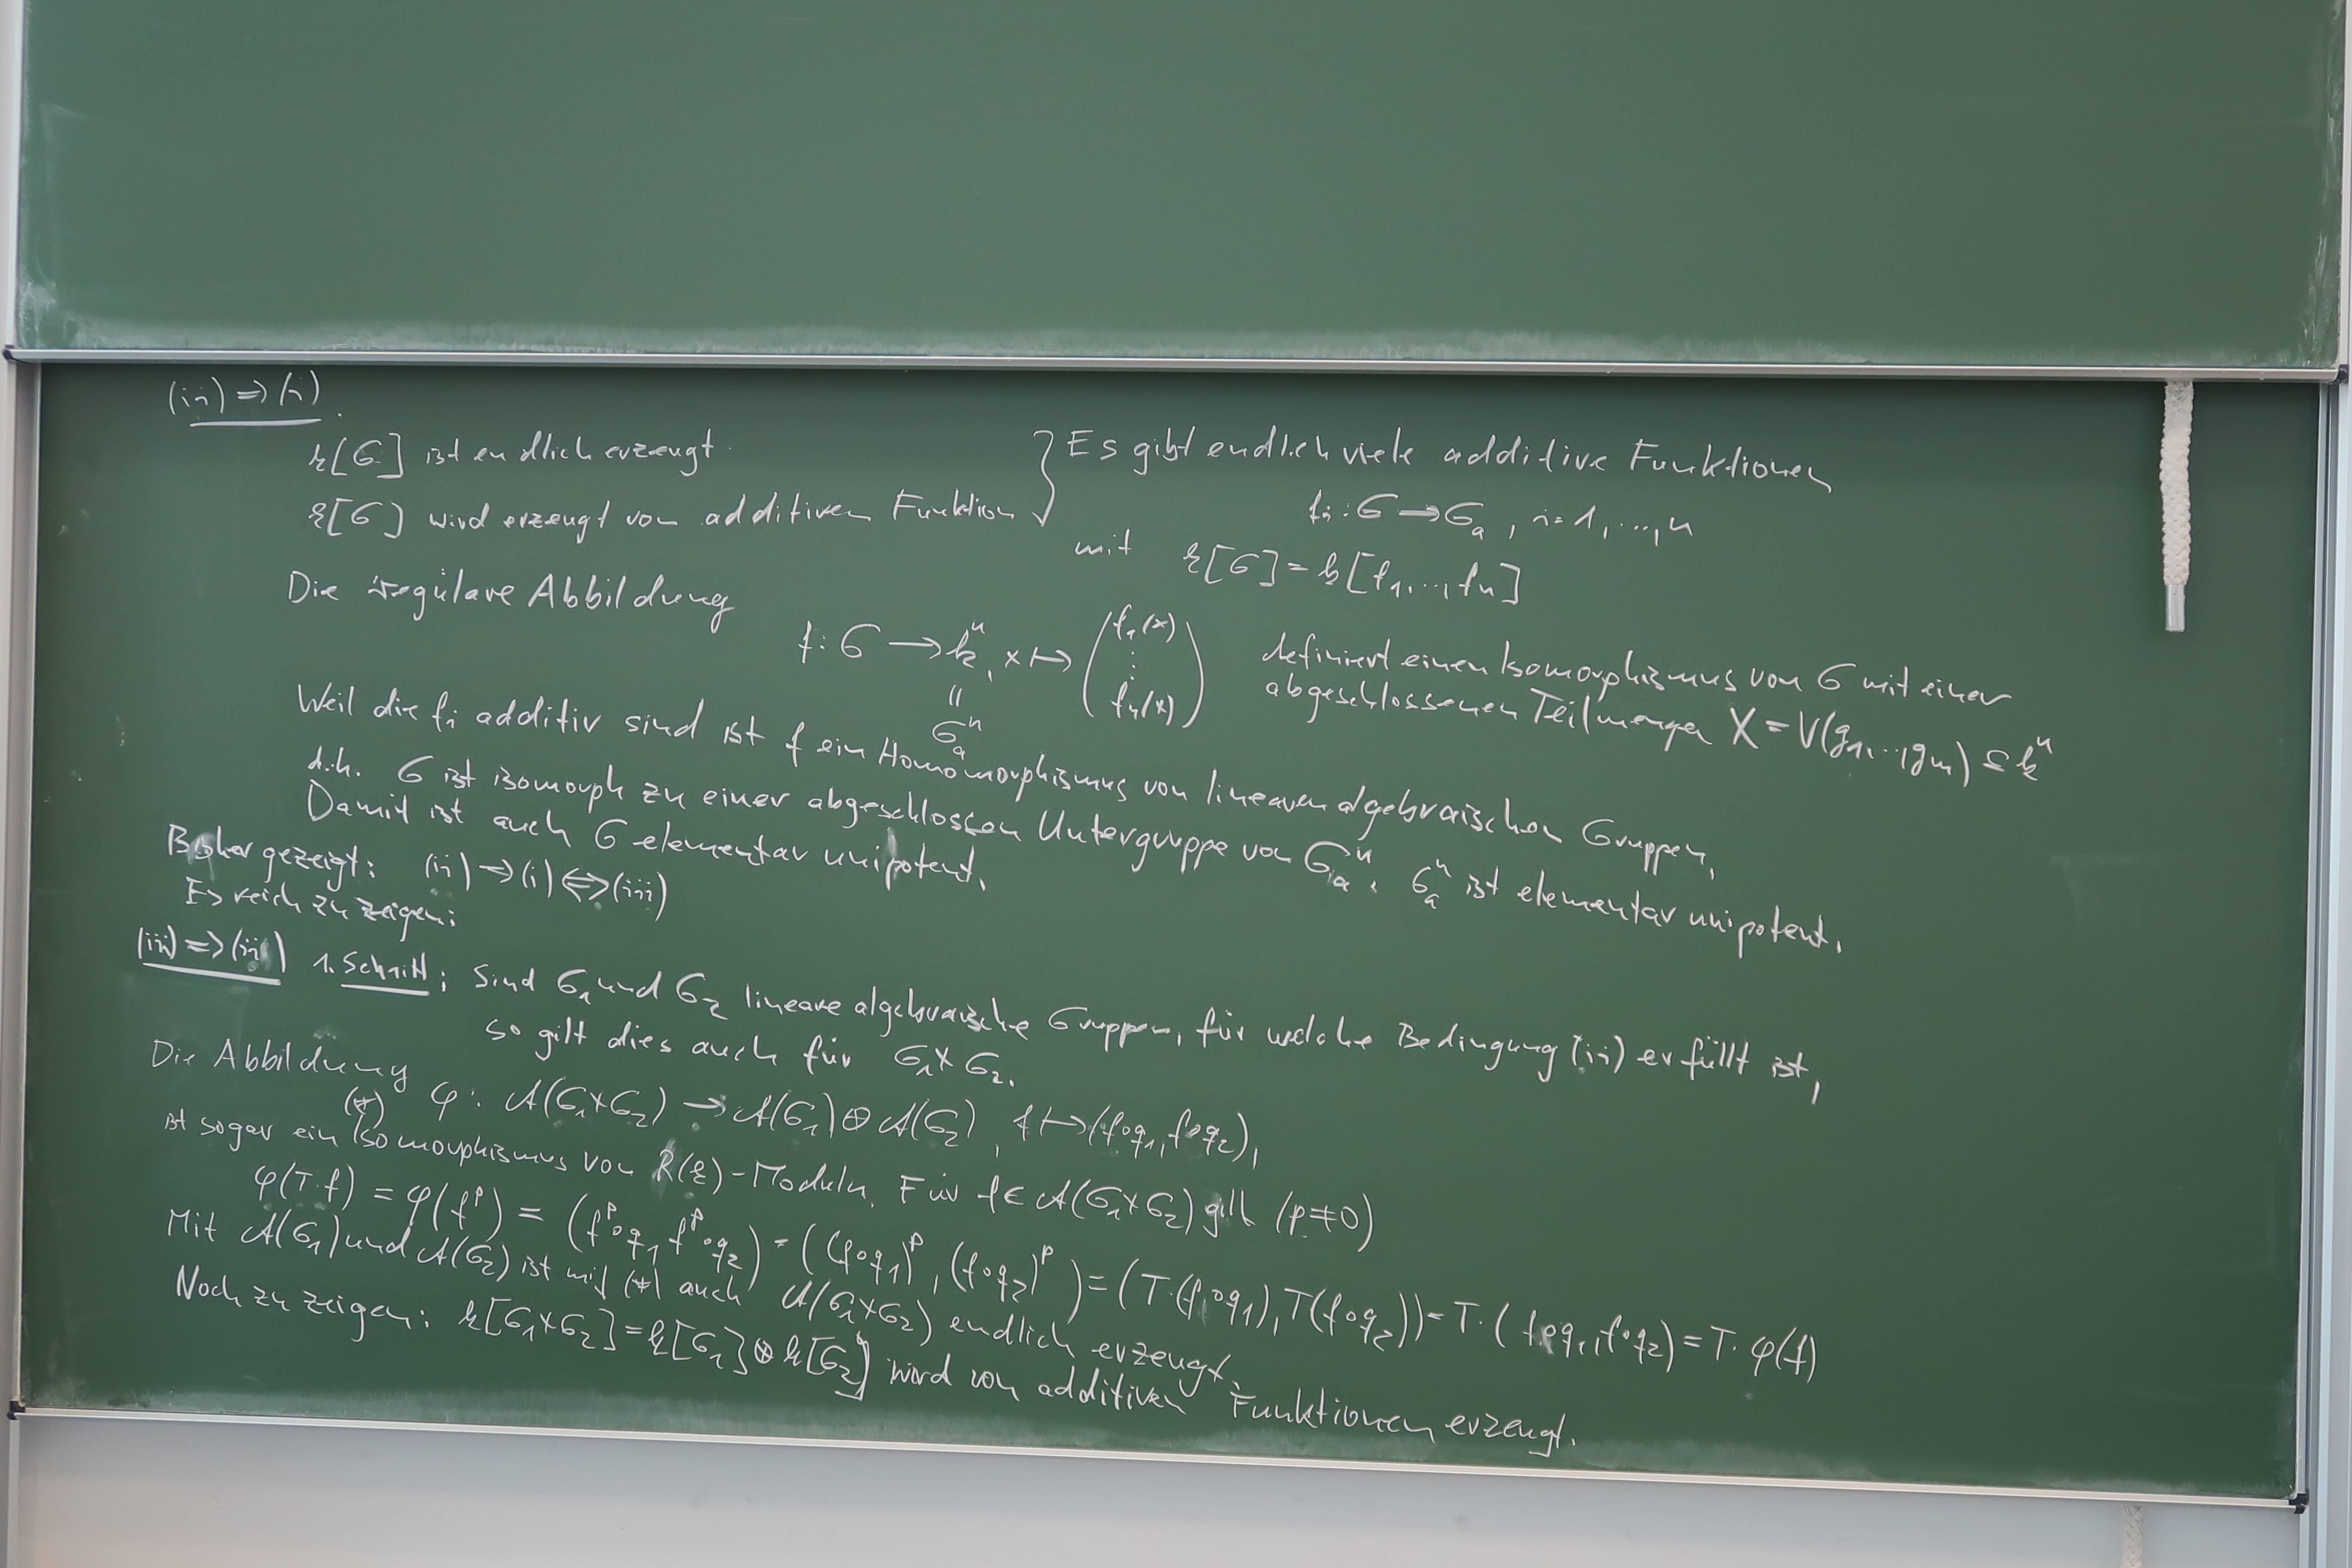 (ii) ⇒ (i)
k[G] ist endlich erzeugt.
k[G] wird erzeugt von additiven Funktion
} Es gibt endlich viele additive Funktionen
fi : G → Ga , i = 1, ..., n
mit k[G] = k[f1, ..., fn]
Die reguläre Abbildung
f: G → k^n, x ↦ (f1(x) ⋮ fn(x)) definiert einen Isomorphismus von G mit einer
abgeschlossenen Teilmenge X = V(g1, ..., gm) ⊆ k^n
=
Ga^n
Weil die fi additiv sind ist f ein Homomorphismus von linearen algebraischen Gruppen,
d.h. G ist isomorph zu einer abgeschlossen Untergruppe von Ga^n. Ga^n ist elementar unipotent.
Damit ist auch G elementar unipotent.
Bisher gezeigt: (ii) ⇒ (i) ⇔ (iii)
Es reich zu zeigen:
(iii) ⇒ (ii) 1. Schritt: Sind G1 und G2 lineare algebraische Gruppen, für welche Bedingung (ii) erfüllt ist,
so gilt dies auch für G1×G2.
Die Abbildung
(*) φ: A(G1×G2) → A(G1) ⊕ A(G2), f ↦ (f∘q1, f∘q2),
ist sogar ein Isomorphismus von R(k)-Moduln. Für f ∈ A(G1×G2) gilt (p≠0)
φ(T·f) = φ(f^p) = (f^p∘q1, f^p∘q2) = ((f∘q1)^p, (f∘q2)^p) = (T·(f∘q1), T(f∘q2)) = T·(f∘q1, f∘q2) = T·φ(f)
Mit A(G1) und A(G2) ist mit (*) auch A(G1×G2) endlich erzeugt.
Noch zu zeigen: k[G1×G2] = k[G1] ⊗ k[G2] wird von additiven Funktionen erzeugt.